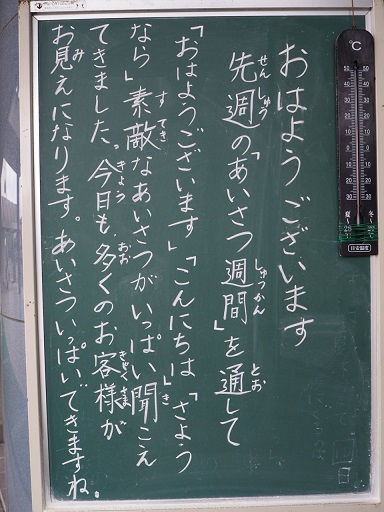 おはようございます
先週の「あいさつ週間」を通して
「おはようございます」「こんにちは」「さよう
なら」素敵なあいさつがいっぱい聞こえ
てきました。今日も、多くのお客様が
お見えになります。あいさついっぱいできますね。
せんしゅう
しゅうかん
とお
き
すてき
きょう
おお
きゃくさま
み
℃
50 50
40 40
30 30
20 20
10 10
0 0
10 10
20 20
30 30